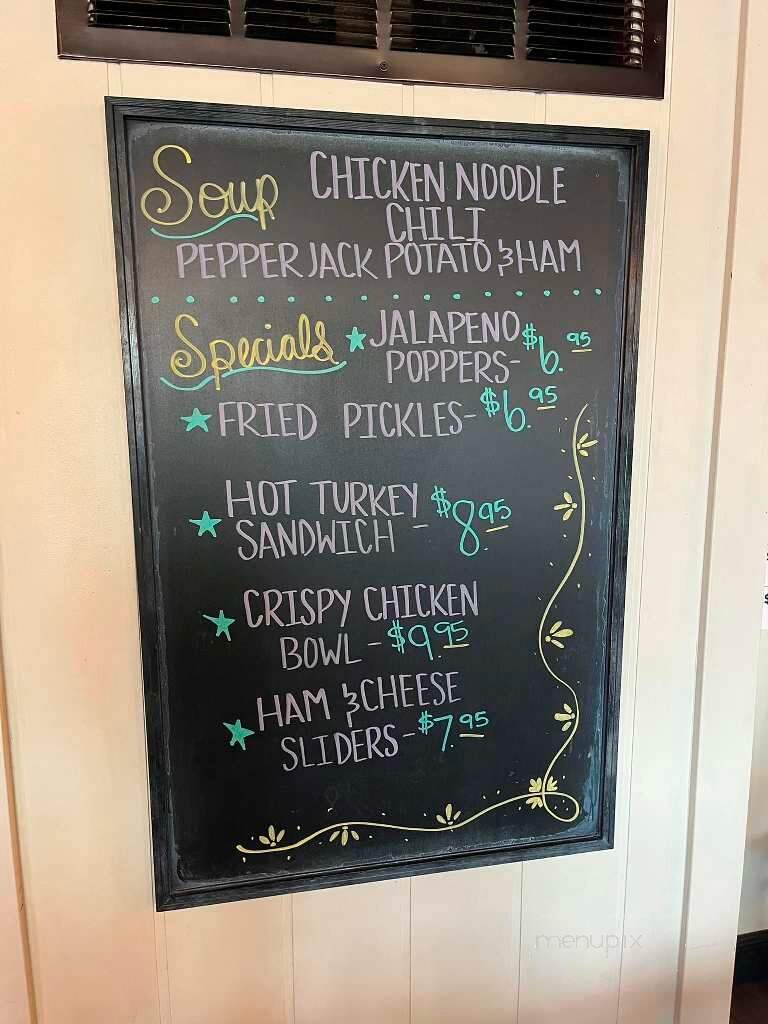 Soup CHICKEN NOODLE
CHILI
PEPPER JACK POTATO & HAM
Specials ★ JALAPENO
POPPERS- $6.95
★ FRIED PICKLES- $6.95
★ HOT TURKEY
SANDWICH - $8.95
★ CRISPY CHICKEN
BOWL - $9.95
★ HAM & CHEESE
SLIDERS - $7.95
menupix